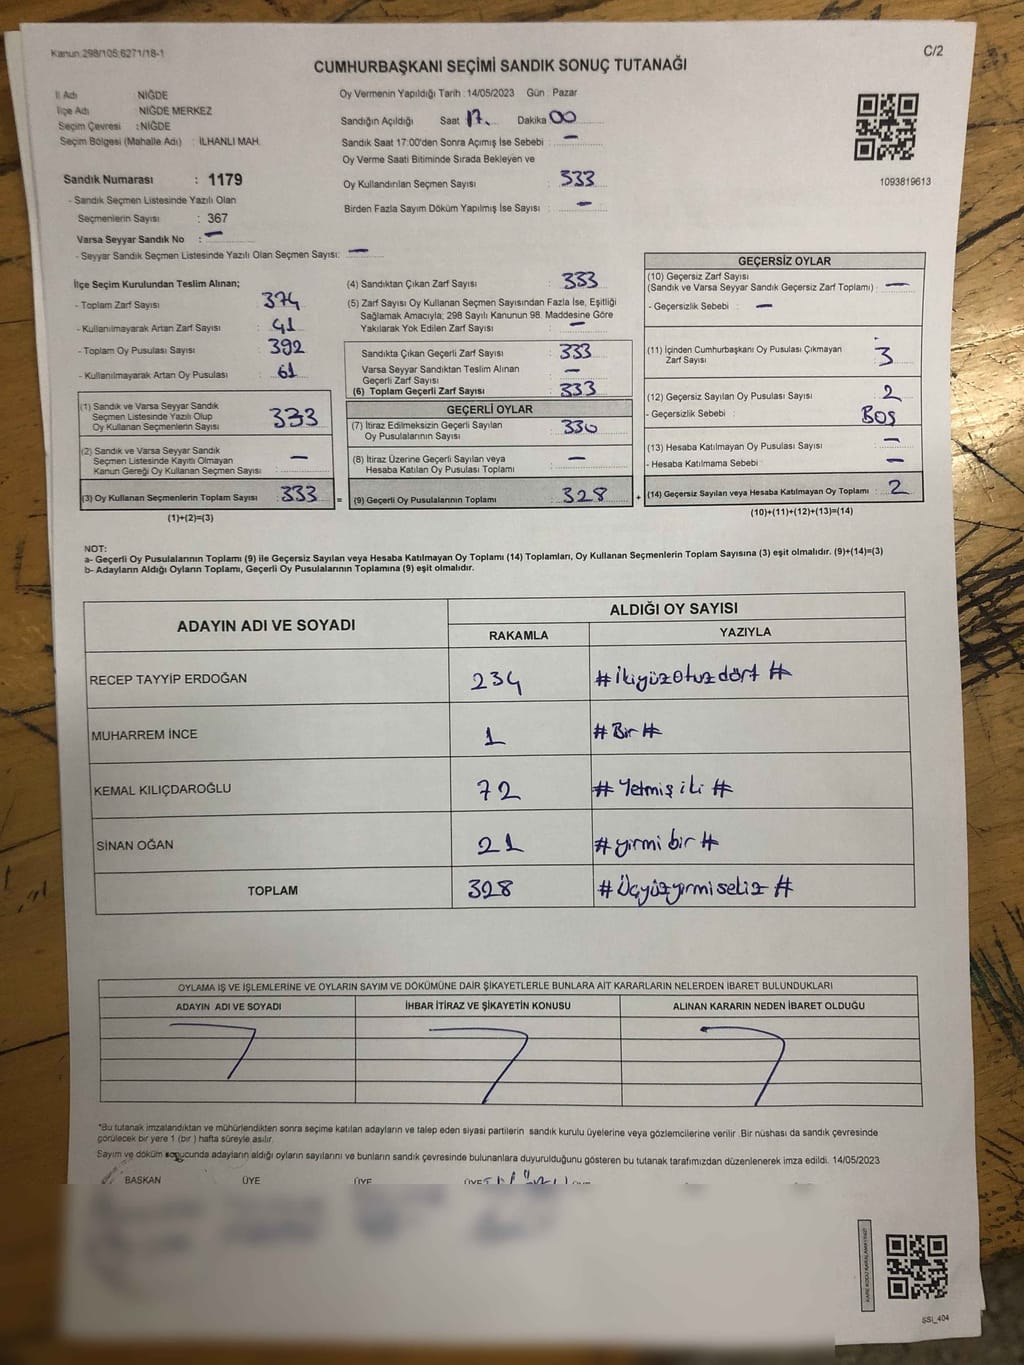 Kanun:298/105;6271/18-1
C/2
CUMHURBAŞKANI SEÇİMİ SANDIK SONUÇ TUTANAĞI
İl Adı : NİĞDE
İlçe Adı : NİĞDE MERKEZ
Seçim Çevresi : NİĞDE
Seçim Bölgesi (Mahalle Adı) : İLHANLI MAH.
Sandık Numarası : 1179
- Sandık Seçmen Listesinde Yazılı Olan
Seçmenlerin Sayısı : 367
Varsa Seyyar Sandık No : -
- Seyyar Sandık Seçmen Listesinde Yazılı Olan Seçmen Sayısı: -
Oy Vermenin Yapıldığı Tarih : 14/05/2023 Gün : Pazar
Sandığın Açıldığı Saat 17. Dakika 00
Sandık Saat 17:00'den Sonra Açımış İse Sebebi : -
Oy Verme Saati Bitiminde Sırada Bekleyen ve
Oy Kullandırılan Seçmen Sayısı : 333
Birden Fazla Sayım Döküm Yapılmış İse Sayısı : -
1093819613
İlçe Seçim Kurulundan Teslim Alınan;
- Toplam Zarf Sayısı : 374
- Kullanılmayarak Artan Zarf Sayısı : 41
- Toplam Oy Pusulası Sayısı : 392
- Kullanılmayarak Artan Oy Pusulası : 61
(1) Sandık ve Varsa Seyyar Sandık
Seçmen Listesinde Yazılı Olup
Oy Kullanan Seçmenlerin Sayısı : 333
(2) Sandık ve Varsa Seyyar Sandık
Seçmen Listesinde Kayıtlı Olmayan
Kanun Gereği Oy Kullanan Seçmen Sayısı : -
(3) Oy Kullanan Seçmenlerin Toplam Sayısı : 333
(1)+(2)=(3)
=
(4) Sandıktan Çıkan Zarf Sayısı : 333
(5) Zarf Sayısı Oy Kullanan Seçmen Sayısından Fazla İse, Eşitliği
Sağlamak Amacıyla; 298 Sayılı Kanunun 98. Maddesine Göre
Yakılarak Yok Edilen Zarf Sayısı : -
Sandıkta Çıkan Geçerli Zarf Sayısı : 333
Varsa Seyyar Sandıktan Teslim Alınan
Geçerli Zarf Sayısı : -
(6) Toplam Geçerli Zarf Sayısı : 333
GEÇERLİ OYLAR
(7) İtiraz Edilmeksizin Geçerli Sayılan
Oy Pusulalarının Sayısı : 330
(8) İtiraz Üzerine Geçerli Sayılan veya
Hesaba Katılan Oy Pusulası Toplamı : -
(9) Geçerli Oy Pusulalarının Toplamı : 328
+
GEÇERSİZ OYLAR
(10) Geçersiz Zarf Sayısı
(Sandık ve Varsa Seyyar Sandık Geçersiz Zarf Toplamı) : -
- Geçersizlik Sebebi : -
(11) İçinden Cumhurbaşkanı Oy Pusulası Çıkmayan
Zarf Sayısı : 3
(12) Geçersiz Sayılan Oy Pusulası Sayısı : 2
- Geçersizlik Sebebi : BOŞ
(13) Hesaba Katılmayan Oy Pusulası Sayısı : -
- Hesaba Katılmama Sebebi : -
(14) Geçersiz Sayılan veya Hesaba Katılmayan Oy Toplamı : 2
(10)+(11)+(12)+(13)=(14)
NOT:
a- Geçerli Oy Pusulalarının Toplamı (9) ile Geçersiz Sayılan veya Hesaba Katılmayan Oy Toplamı (14) Toplamları, Oy Kullanan Seçmenlerin Toplam Sayısına (3) eşit olmalıdır. (9)+(14)=(3)
b- Adayların Aldığı Oyların Toplamı, Geçerli Oy Pusulalarının Toplamına (9) eşit olmalıdır.
ADAYIN ADI VE SOYADI ALDIĞI OY SAYISI
RAKAMLA YAZIYLA
RECEP TAYYİP ERDOĞAN 234 #İkiyüzotuzdört#
MUHARREM İNCE 1 #Bir#
KEMAL KILIÇDAROĞLU 72 #Yetmişiki#
SİNAN OĞAN 21 #yirmibir#
TOPLAM 328 #Üçyüzyirmisekiz#
OYLAMA İŞ VE İŞLEMLERİNE VE OYLARIN SAYIM VE DÖKÜMÜNE DAİR ŞİKAYETLERLE BUNLARA AİT KARARLARIN NELERDEN İBARET BULUNDUKLARI
ADAYIN ADI VE SOYADI İHBAR İTİRAZ VE ŞİKAYETİN KONUSU ALINAN KARARIN NEDEN İBARET OLDUĞU
*Bu tutanak imzalandıktan ve mühürlendikten sonra seçime katılan adayların ve talep eden siyasi partilerin sandık kurulu üyelerine veya gözlemcilerine verilir .Bir nüshası da sandık çevresinde
görülecek bir yere 1 (bir ) hafta süreyle asılır.
Sayım ve döküm sonucunda adayların aldığı oyların sayılarını ve bunların sandık çevresinde bulunanlara duyurulduğunu gösteren bu tutanak tarafımızdan düzenlenerek imza edildi. 14/05/2023
BAŞKAN ÜYE ÜYE ÜYE
SSİ_404